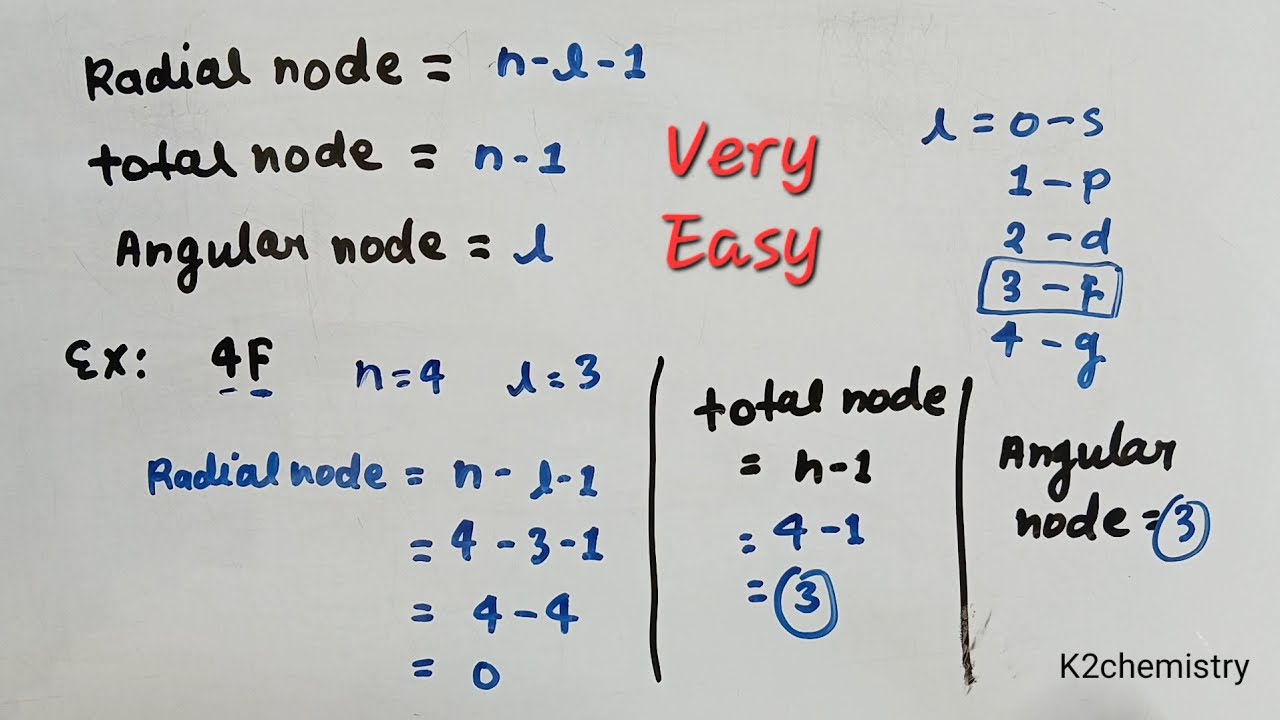 Radial node = n-l-1
total node = n-1
Angular node = l
Very
Easy
l = 0-s
1-p
2-d
3-f
4-g
Ex: 4F n=4 l=3
Radial node = n-l-1
= 4-3-1
= 4-4
= 0
total node
= n-1
= 4-1
= 3
Angular
node = 3
K2chemistry